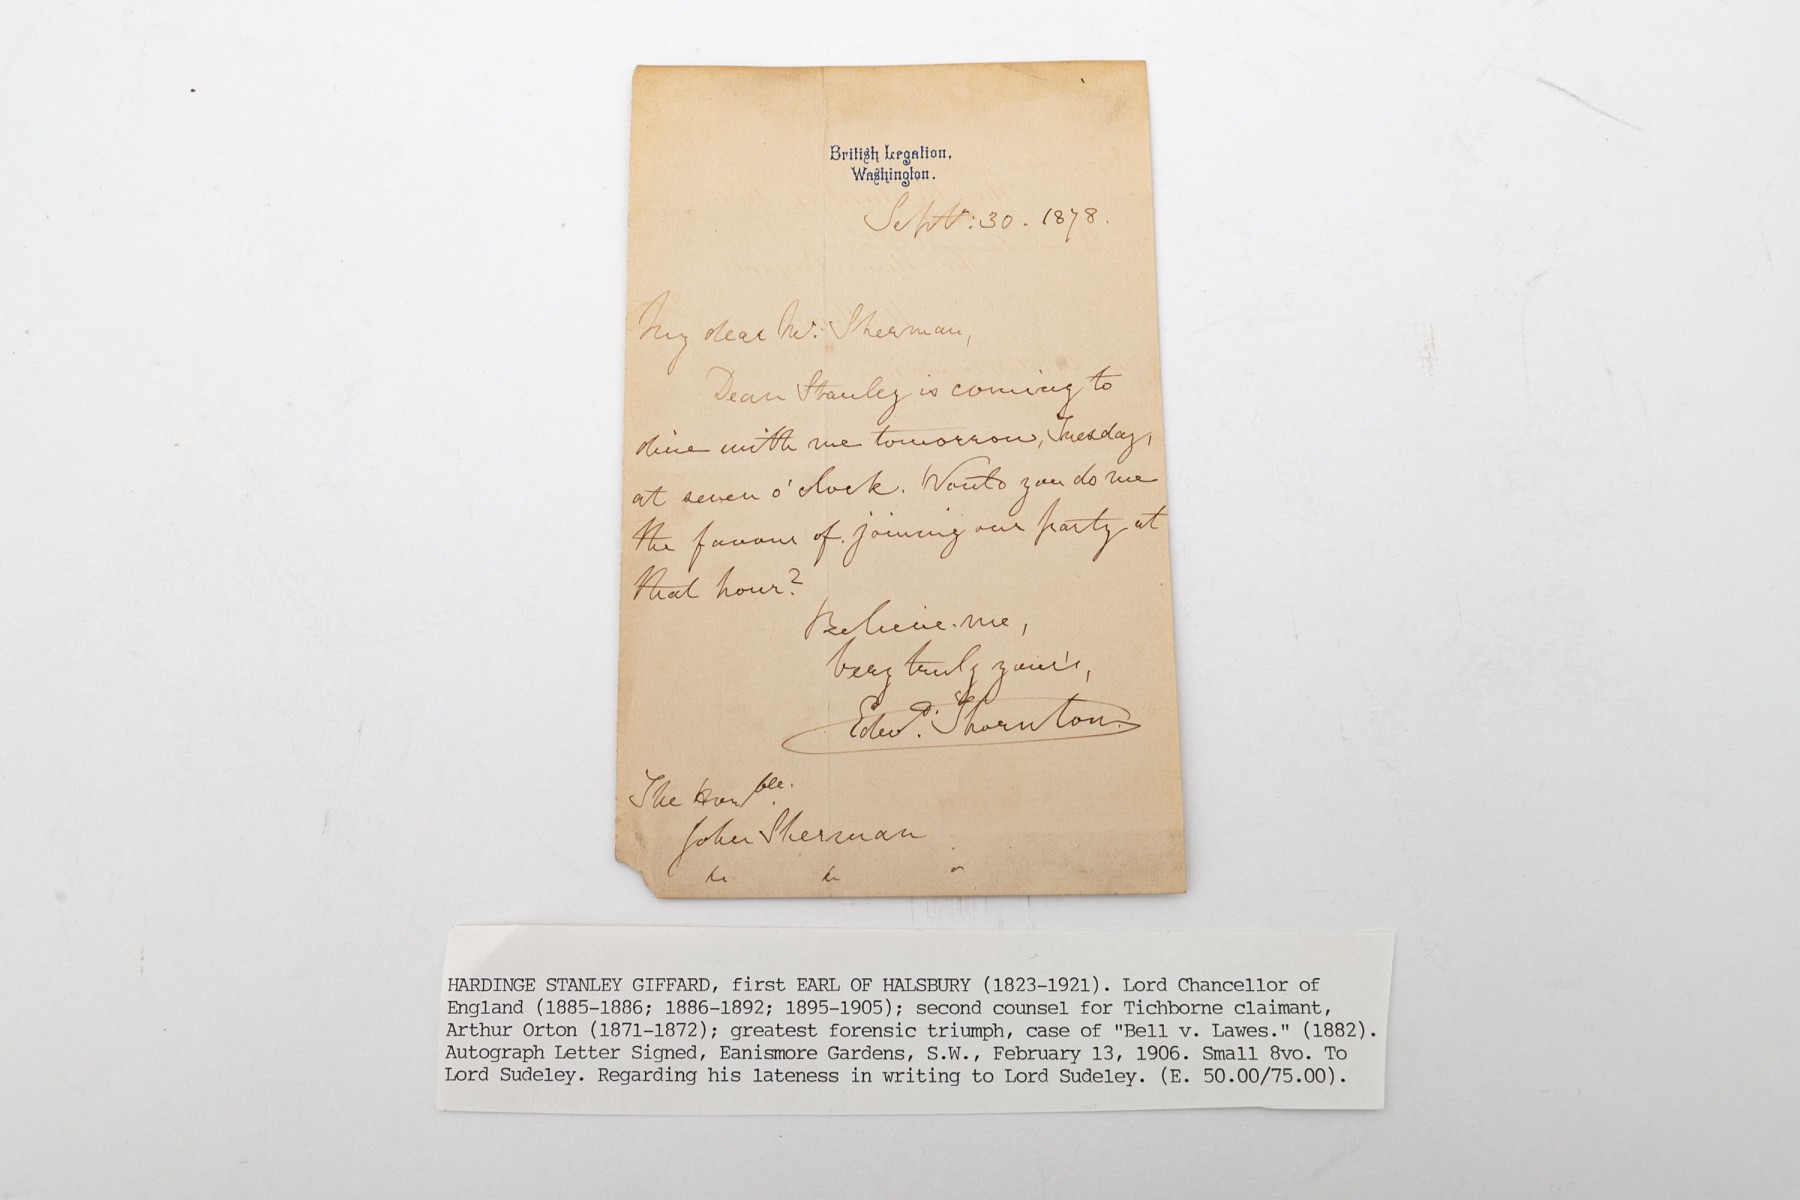 British Legation,
Washington.
Sept: 30. 1878.
My dear Mr. Sherman,
Dean Stanley is coming to
dine with me tomorrow, Tuesday,
at seven o'clock. Would you do me
the favour of joining our party at
that hour?
Believe me,
Very truly yours,
Edwd. Thornton.
The Honble.
John Sherman
HARDINGE STANLEY GIFFARD, first EARL OF HALSBURY (1823-1921). Lord Chancellor of
England (1885-1886; 1886-1892; 1895-1905); second counsel for Tichborne claimant,
Arthur Orton (1871-1872); greatest forensic triumph, case of "Bell v. Lawes." (1882).
Autograph Letter Signed, Eanismore Gardens, S.W., February 13, 1906. Small 8vo. To
Lord Sudeley. Regarding his lateness in writing to Lord Sudeley. (E. 50.00/75.00).